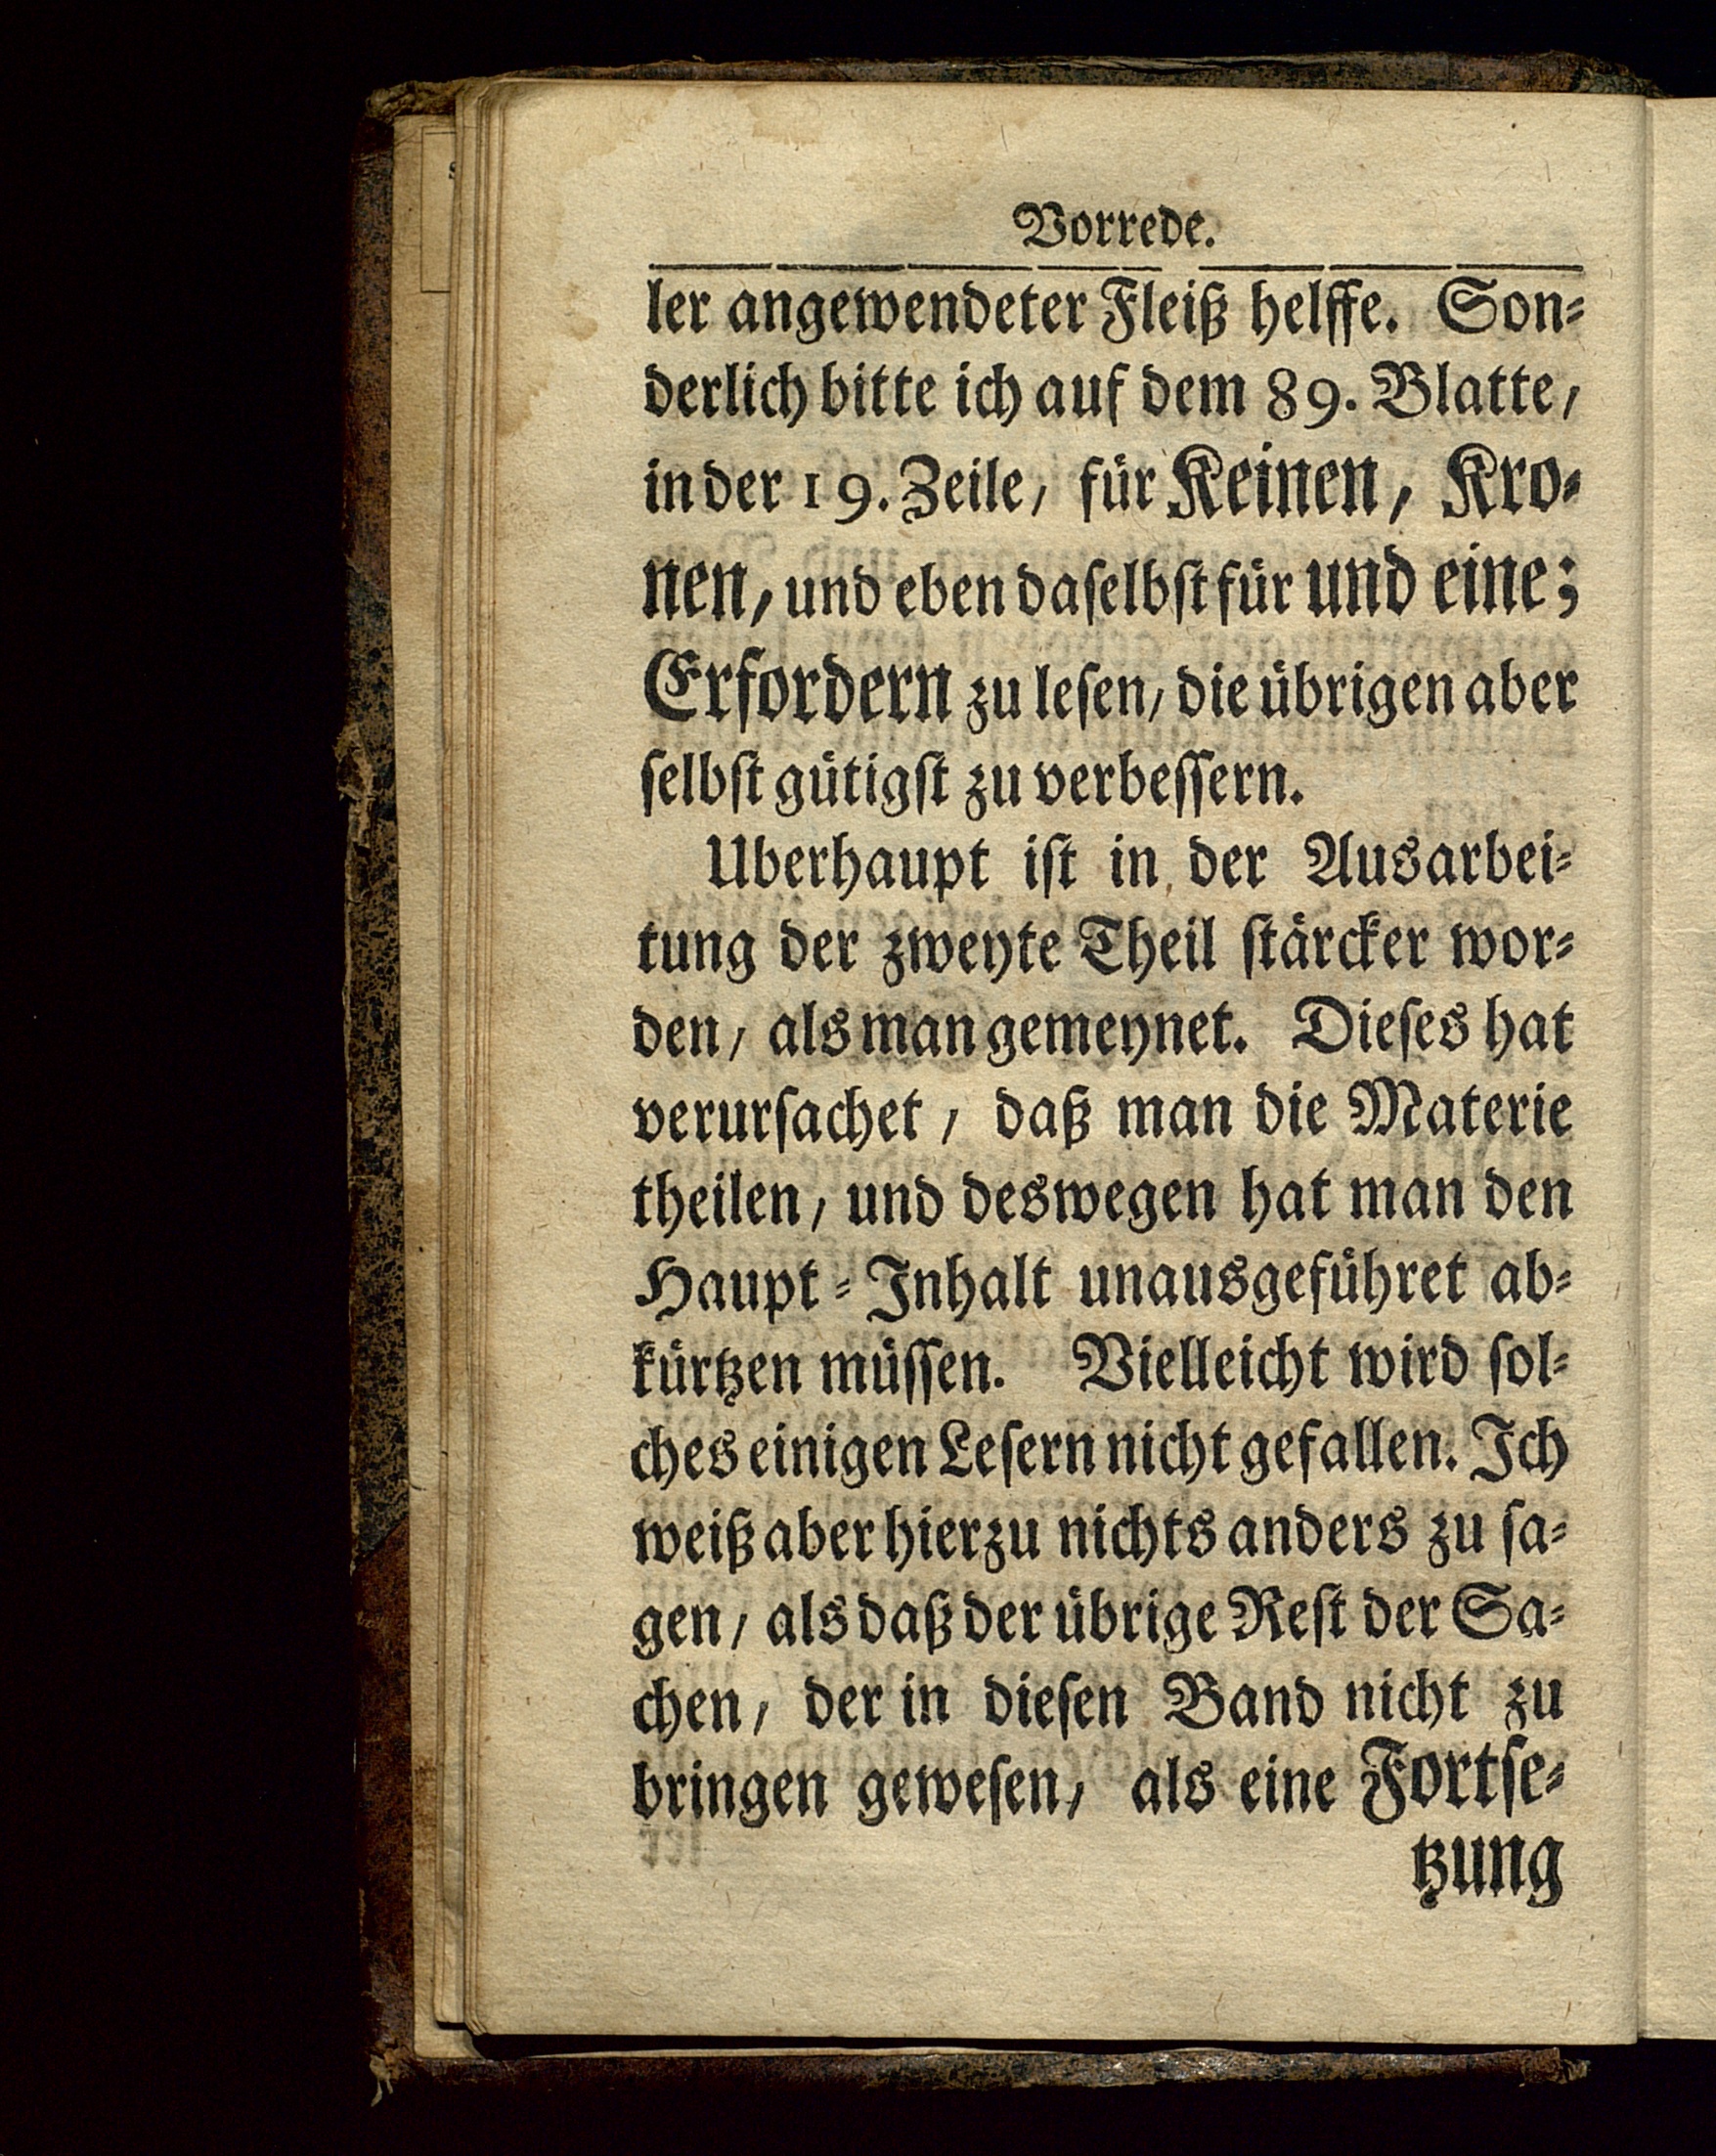 Vorrede.
ler angewendeter Fleiß helffe. Son⸗
derlich bitte ich auf dem 89. Blatte,
in der 19. Zeile, für Keinen, Kro⸗
nen, und eben daſelbſt für und eine;
Erfordern zu leſen, die übrigen aber
ſelbſt gütigſt zu verbeſſern.
Uberhaupt iſt in der Ausarbei⸗
tung der zweyte Theil ſtärcker wor⸗
den, als man gemeynet. Dieſes hat
verurſachet, daß man die Materie
theilen, und deswegen hat man den
Haupt⸗Inhalt unausgeführet ab⸗
kürtzen müſſen. Vielleicht wird ſol⸗
ches einigen Leſern nicht gefallen. Ich
weiß aber hierzu nichts anders zu ſa⸗
gen, als daß der übrige Reſt der Sa⸗
chen, der in dieſen Band nicht zu
bringen geweſen, als eine Fortſe⸗
tzung